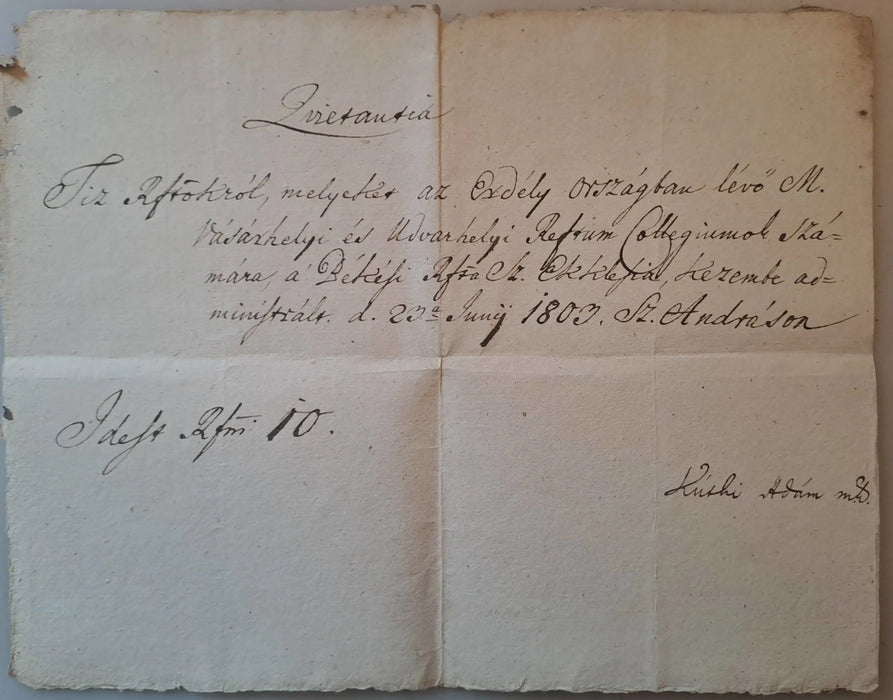 Qvietantia
Tiz Rftokról, melyeket az Erdély országban lévő M.
Vásárhelyi és Udvarhelyi Reftum Collegiumok szá=
mára, a' Békési Rfta Sz. Ekklesia, kezembe ad=
ministrált. d. 23a Junij 1803. Sz. Andráson
Idest Rfni 10.
Kúthi Ádám mk.